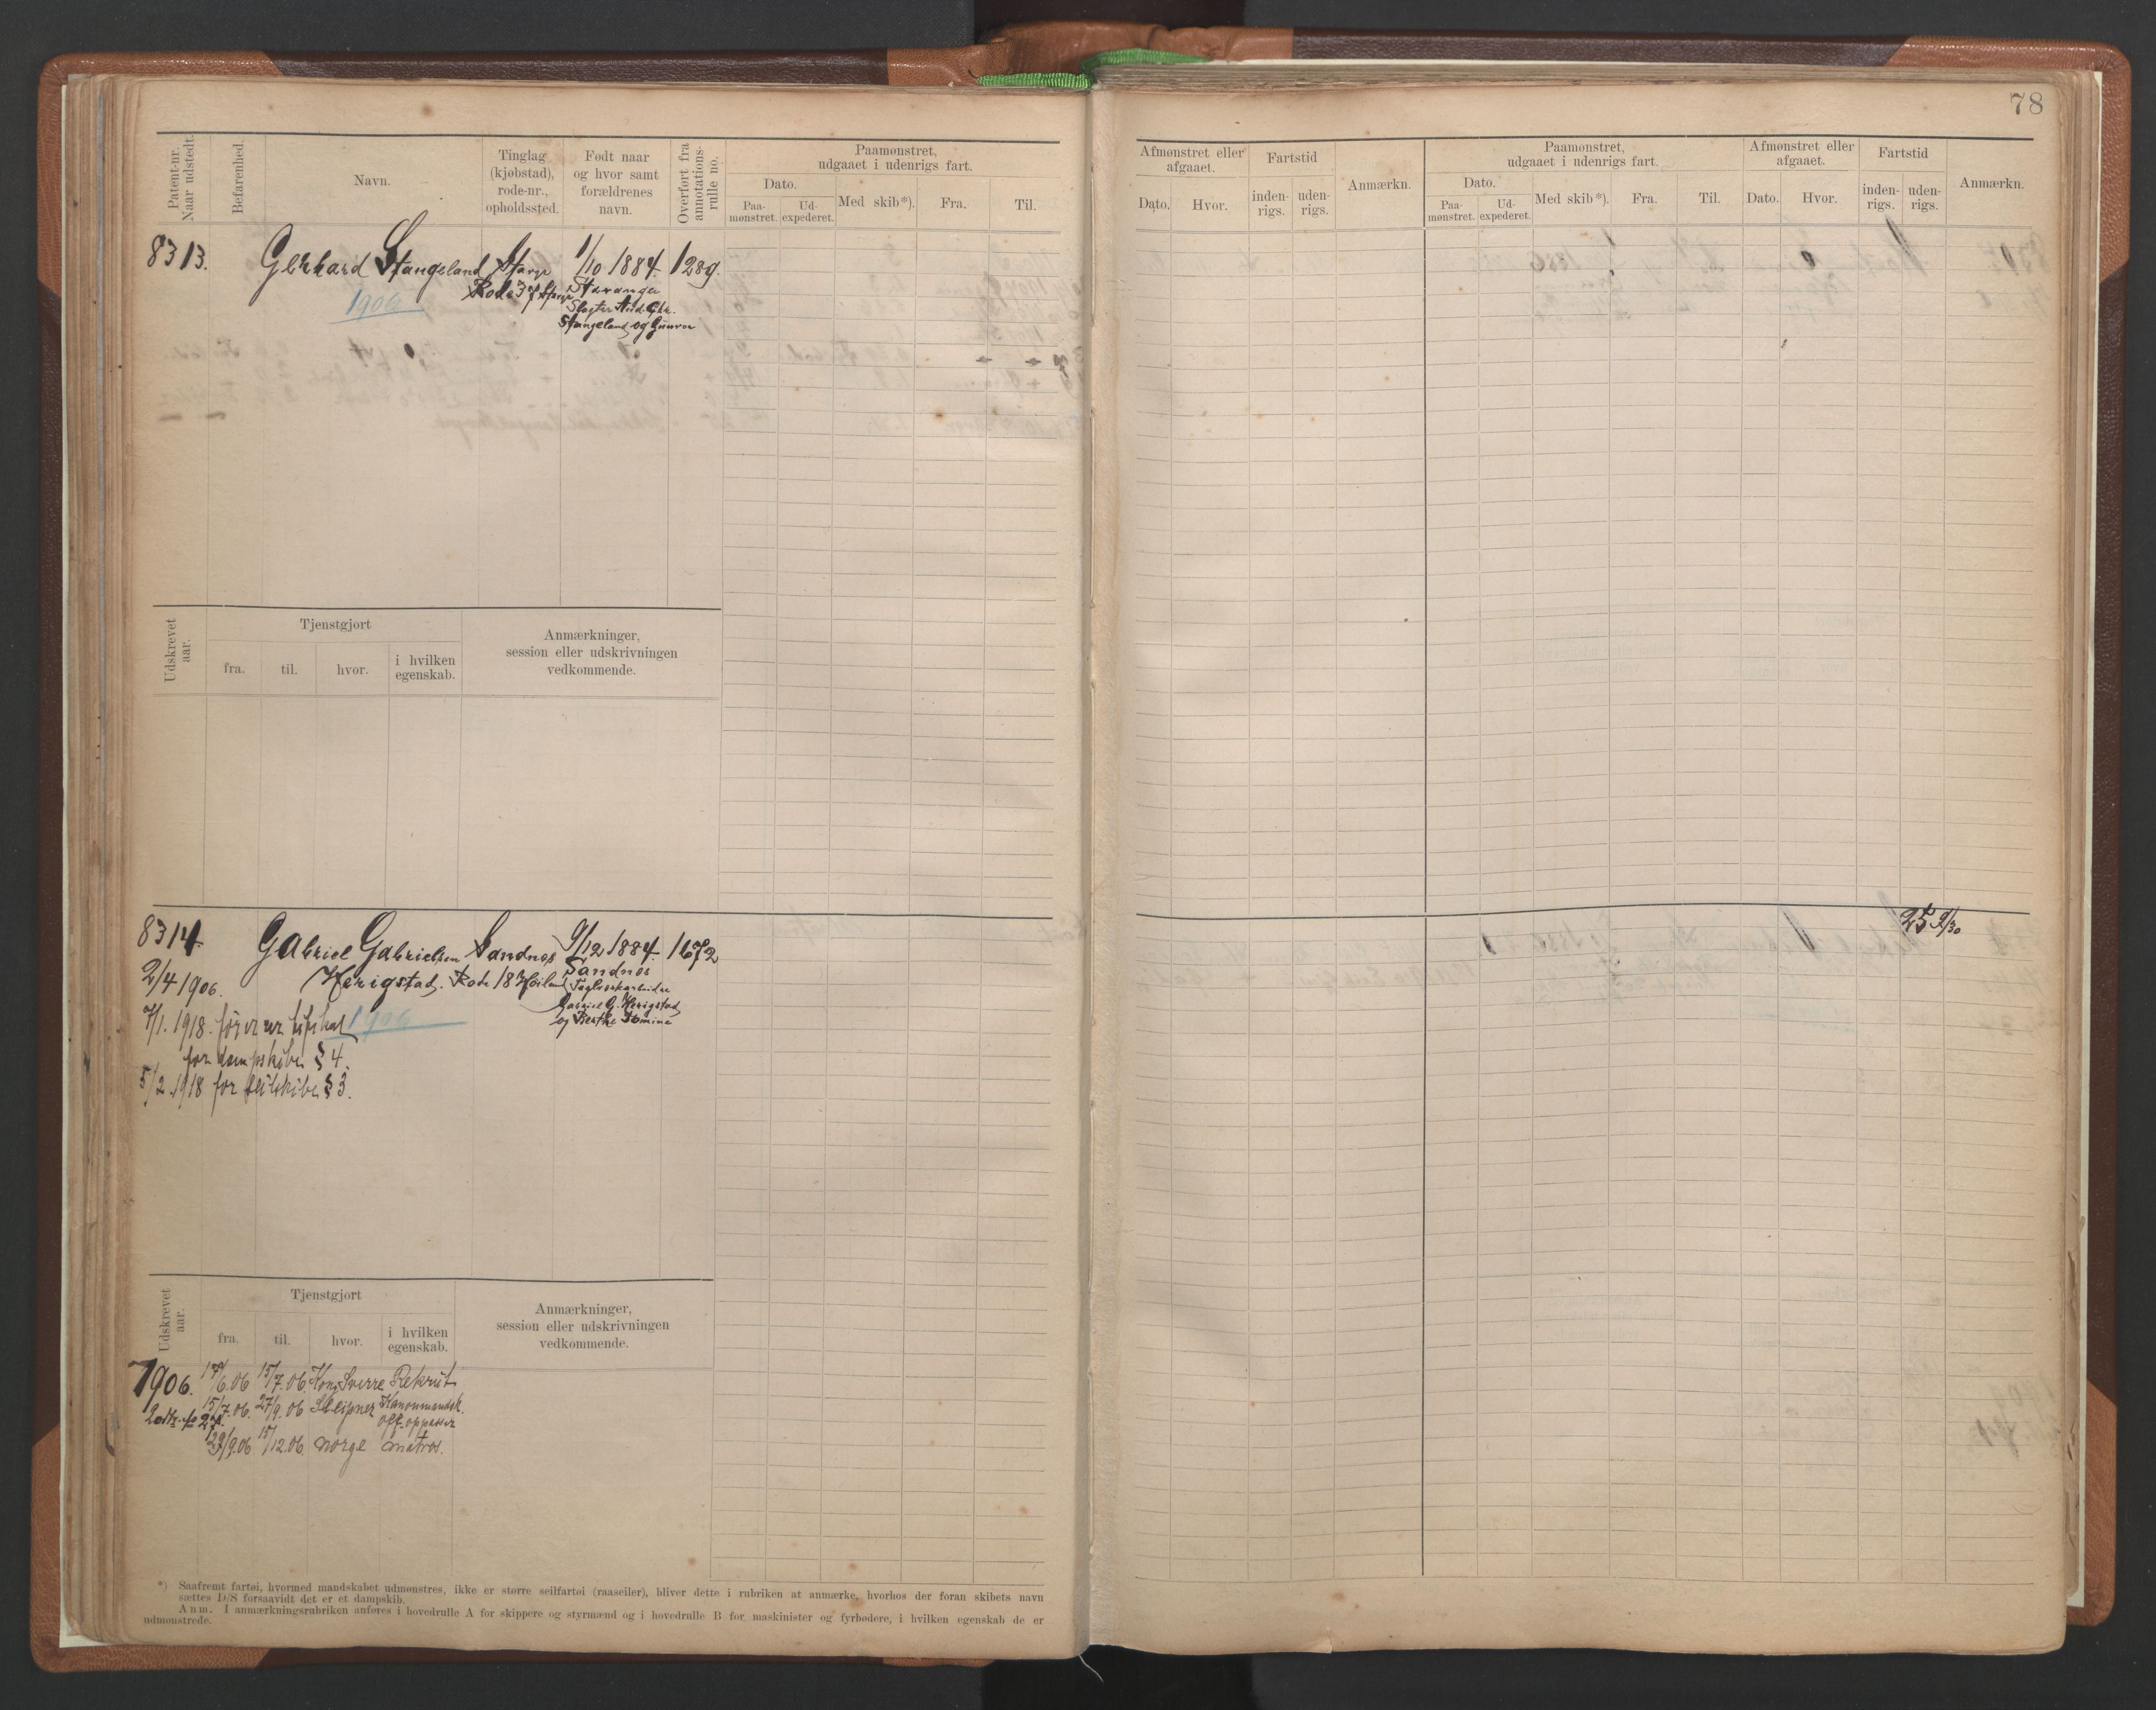 78
Patent-nr. Naar udstedt.
Befarenhed.
Navn.
Tinglag (kjøbstad), rode-nr., opholdssted.
Født naar og hvor samt forældrenes navn.
Overført fra annotations-rulle no.
Paamønstret, udgaaet i udenrigs fart.
Dato.
Paa-mønstret.
Ud-expederet.
Med skib*).
Fra.
Til.
Afmønstret eller afgaaet.
Dato.
Hvor.
Fartstid
inden-rigs.
uden-rigs.
Anmærkn.
Paamønstret, udgaaet i udenrigs fart.
Dato.
Paa-mønstret.
Ud-expederet.
Med skib*).
Fra.
Til.
Afmønstret eller afgaaet.
Dato.
Hvor.
Fartstid
inden-rigs.
uden-rigs.
Anmærkn.
8313. Gerhard Stangeland Stavr 1/10 1884. 1289.
1906
Rode 37 Stavr
Stavanger
Slagter
Stangeland og Gunvor
Udskrevet aar.
Tjenstgjort
fra.
til.
hvor.
i hvilken egenskab.
Anmærkninger, session eller udskrivningen vedkommende.
8314. Gabriel Gabrielsen Sandnes 9/12 1884. 1672
2/4 1906. Herigstad. Rode 18 Høiland
Sandnes
Gabriel G. Herigstad
og Berthe Tomine
7/1. 1918. 1906
for dampskibe § 4.
5/2. 1918 for seilskibe § 3.
25 9/30
Udskrevet aar.
Tjenstgjort
fra.
til.
hvor.
i hvilken egenskab.
Anmærkninger, session eller udskrivningen vedkommende.
1906. 17/6.06 15/7.06. Kong Sverre Rekrut
15/7.06. 27/9.06 Sleipner Kanonmandsk.
off. opvasser
29/9.06 15/12.06. Norge matros.
*) Saafremt fartøi, hvormed mandskabet udmønstres, ikke er større seilfartøi (raaseiler), bliver dette i rubriken at anmærke, hvorhos der foran skibets navn
sættes D/S forsaavidt det er et dampskib.
Anm. I anmærkningsrubriken anføres i hovedrulle A for skippere og styrmænd og i hovedrulle B for maskinister og fyrbødere, i hvilken egenskab de er
udmønstrede.